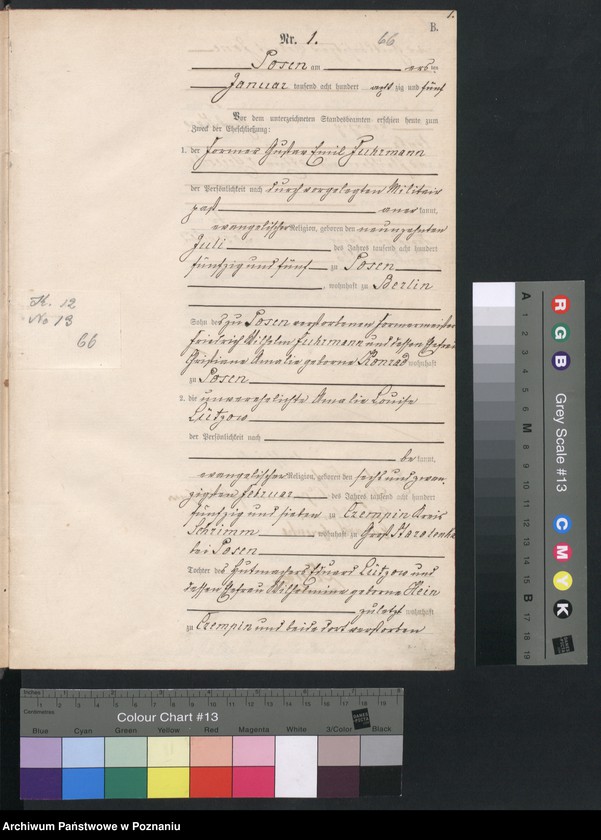 1.
B.
Nr. 1.
66
Posen am ersten
Januar tausend acht hundert achtzig und fünf
Vor dem unterzeichneten Standesbeamten erschien heute zum
Zweck der Eheschließung:
1. der Former Gustav Emil Fuhrmann
der Persönlichkeit nach durch vorgelegten Militair
paß anerkannt,
evangelischer Religion, geboren den neunzehnten
Juli des Jahres tausend acht hundert
fünfzig und fünf zu Posen
, wohnhaft zu Berlin
Sohn des zu Posen verstorbenen Formermeister
Friedrich Wilhelm Fuhrmann und dessen Ehefrau
Christiane Amalie geborne Konrad wohnhaft
zu Posen
2. die unverehelichte Amalie Louise
Lützow
der Persönlichkeit nach
bekannt,
evangelischer Religion, geboren den sechs und zwan
zigsten Februar des Jahres tausend acht hundert
fünfzig und sieben zu Czempin Kreis
Schrimm, wohnhaft zu Groß Starolenka
bei Posen
Tochter des Hutmachers Eduard Lützow und
dessen Ehefrau Wilhelmine geborne Klein
zuletzt wohnhaft
zu Czempin und beide dort verstorben
K. 12
No 13
66
Grey Scale #13
R G B C M Y K
A 1 2 3 4 5 6 M 8 9 10 11 12 13 14 15 B 17 18 19
Inches 1 2 3 4 5 6 7 8
Centimetres 1 2 3 4 5 6 7 8 9 10 11 12 13 14 15 16 17 18 19
Colour Chart #13
Blue Cyan Green Yellow Red Magenta White 3/Color Black
Archiwum Państwowe w Poznaniu